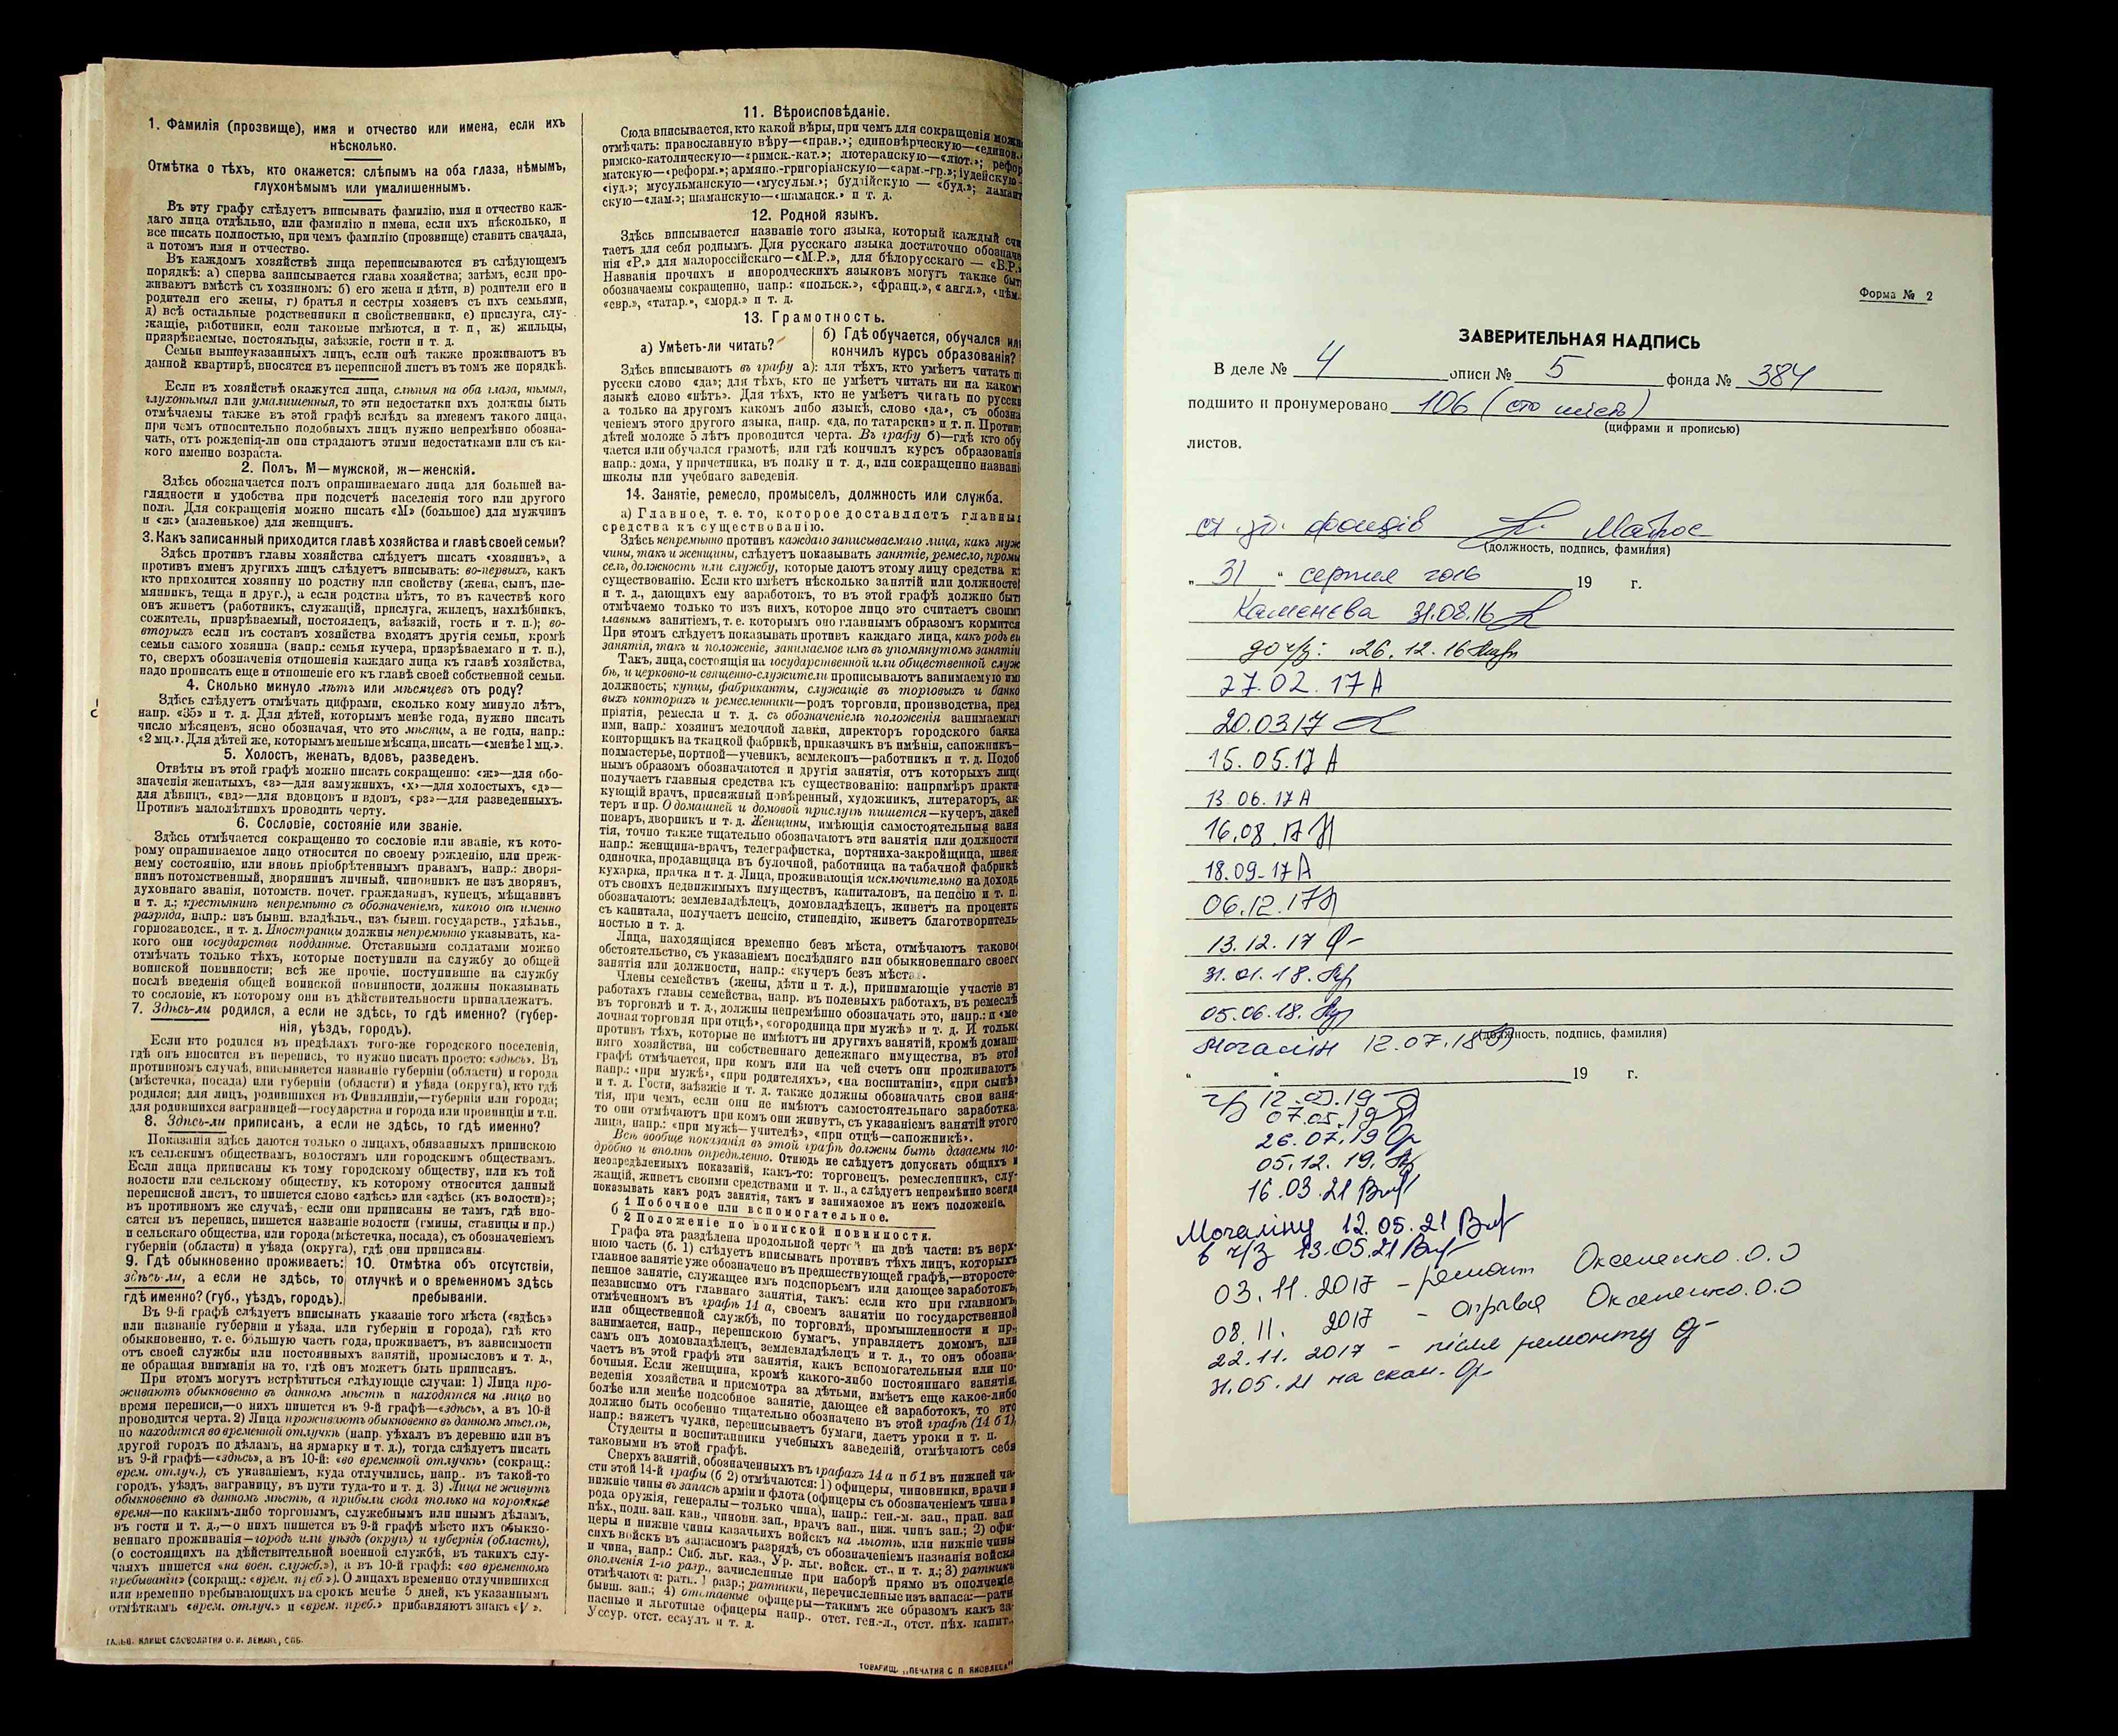 1. Фамилія (прозвище), имя и отчество или имена, если ихъ
нѣсколько.
Отмѣтка о тѣхъ, кто окажется: слѣпымъ на оба глаза, нѣмымъ,
глухонѣмымъ или умалишеннымъ.
Въ эту графу слѣдуетъ вписывать фамилію, имя и отчество каж-
даго лица отдѣльно, или фамилію и имена, если ихъ нѣсколько, и
все писать полностью, при чемъ фамилію (прозвище) ставить сначала,
а потомъ имя и отчество.
Въ каждомъ хозяйствѣ лица переписываются въ слѣдующемъ
порядкѣ: а) сперва записывается глава хозяйства; затѣмъ, если про-
живаютъ вмѣстѣ съ хозяиномъ: б) его жена и дѣти, в) родители его и
родители его жены, г) братья и сестры хозяевъ съ ихъ семьями,
д) всѣ остальные родственники и свойственники, е) прислуга, слу-
жащіе, работники, если таковые имѣются, и т. п., ж) жильцы,
призрѣваемые, постояльцы, заѣзжіе, гости и т. д.
Семьи вышеуказанныхъ лицъ, если онѣ также проживаютъ въ
данной квартирѣ, вносятся въ переписной листъ въ томъ же порядкѣ.
Если въ хозяйствѣ окажутся лица, слѣпыя на оба глаза, нѣмыя,
глухонѣмыя или умалишенныя, то эти недостатки ихъ должны быть
отмѣчаемы также въ этой графѣ вслѣдъ за именемъ такого лица,
при чемъ относительно подобныхъ лицъ нужно непремѣнно обозна-
чать, отъ рожденія-ли они страдаютъ этими недостатками или съ ка-
кого именно возраста.
2. Полъ, М—мужской, ж—женскій.
Здѣсь обозначается полъ опрашиваемаго лица для большей на-
глядности и удобства при подсчетѣ населенія того или другого
пола. Для сокращенія можно писать «М» (большое) для мужчинъ
и «ж» (маленькое) для женщинъ.
3. Какъ записанный приходится главѣ хозяйства и главѣ своей семьи?
Здѣсь противъ главы хозяйства слѣдуетъ писать «хозяинъ», а
противъ именъ другихъ лицъ слѣдуетъ вписывать: во-первыхъ, какъ
кто приходится хозяину по родству или свойству (жена, сынъ, пле-
мянникъ, теща и друг.), а если родства нѣтъ, то въ качествѣ кого
онъ живетъ (работникъ, служащій, прислуга, жилецъ, нахлѣбникъ,
сожитель, призрѣваемый, постоялецъ, заѣзжій, гость и т. п.); во-
вторыхъ если въ составъ хозяйства входятъ другія семьи, кромѣ
семьи самого хозяина (напр.: семья кучера, призрѣваемаго и т. п.),
то, сверхъ обозначенія отношенія каждаго лица къ главѣ хозяйства,
надо прописать еще и отношеніе его къ главѣ своей собственной семьи.
4. Сколько минуло лѣтъ или мѣсяцевъ отъ роду?
Здѣсь слѣдуетъ отмѣчать цифрами, сколько кому минуло лѣтъ,
напр. «35» и т. д. Для дѣтей, которымъ менѣе года, нужно писать
число мѣсяцевъ, ясно обозначая, что это мѣсяцы, а не годы, напр.:
«2 мц.». Для дѣтей же, которымъ меньше мѣсяца, писать—«менѣе 1 мц.».
5. Холостъ, женатъ, вдовъ, разведенъ.
Отвѣты въ этой графѣ можно писать сокращенно: «ж»—для обо-
значенія женатыхъ, «з»—для замужнихъ, «х»—для холостыхъ, «д»—
для дѣвицъ, «вд»—для вдовцовъ и вдовъ, «рз»—для разведенныхъ.
Противъ малолѣтнихъ проводить черту.
6. Сословіе, состояніе или званіе.
Здѣсь отмѣчается сокращенно то сословіе или званіе, къ кото-
рому опрашиваемое лицо относится по своему рожденію, или преж-
нему состоянію, или вновь пріобрѣтеннымъ правамъ, напр.: дворя-
нинъ потомственный, дворянинъ личный, чиновникъ не изъ дворянъ,
духовнаго званія, потомств. почет. гражданинъ, купецъ, мѣщанинъ
и т. д.; крестьянинъ непремѣнно съ обозначеніемъ, какого онъ именно
разряда, напр.: изъ бывш. владѣльч., изъ бывш. государств., удѣльн.,
горнозаводск., и т. д. Иностранцы должны непремѣнно указывать, ка-
кого они государства подданные. Отставными солдатами можно
отмѣчать только тѣхъ, которые поступили на службу до общей
воинской повинности; всѣ же прочіе, поступившіе на службу
послѣ введенія общей воинской повинности, должны показывать
то сословіе, къ которому они въ дѣйствительности принадлежатъ.
7. Здѣсь-ли родился, а если не здѣсь, то гдѣ именно? (губер-
нія, уѣздъ, городъ).
Если кто родился въ предѣлахъ того-же городского поселенія,
гдѣ онъ вносится въ перепись, то нужно писать просто: «здѣсь». Въ
противномъ случаѣ, вписывается названіе губерніи (области) и города
(мѣстечка, посада) или губерніи (области) и уѣзда (округа), кто гдѣ
родился; для лицъ, родившихся въ Финляндіи,—губернія или города;
для родившихся заграницей—государства и города или провинціи и т.п.
8. Здѣсь-ли приписанъ, а если не здѣсь, то гдѣ именно?
Показанія здѣсь даются только о лицахъ, обязанныхъ припискою
къ сельскимъ обществамъ, волостямъ или городскимъ обществамъ.
Если лица приписаны къ тому городскому обществу, или къ той
волости или сельскому обществу, къ которому относится данный
переписной листъ, то пишется слово «здѣсь» или «здѣсь (къ волости)»;
въ противномъ же случаѣ, если они приписаны не тамъ, гдѣ вно-
сятся въ перепись, пишется названіе волости (гмины, станицы и пр.)
и сельскаго общества, или города (мѣстечка, посада), съ обозначеніемъ
губерніи (области) и уѣзда (округа), гдѣ они приписаны.
9. Гдѣ обыкновенно проживаетъ: 10. Отмѣтка объ отсутствіи,
здѣсь-ли, а если не здѣсь, то отлучкѣ и о временномъ здѣсь
гдѣ именно? (губ., уѣздъ, городъ). пребываніи.
Въ 9-й графѣ слѣдуетъ вписывать указаніе того мѣста («здѣсь»
или названіе губерніи и уѣзда, или губерніи и города), гдѣ кто
обыкновенно, т. е. бо́льшую часть года, проживаетъ, въ зависимости
отъ своей службы или постоянныхъ занятій, промысловъ и т. д.,
не обращая вниманія на то, гдѣ онъ можетъ быть приписанъ.
При этомъ могутъ встрѣтиться слѣдующіе случаи: 1) Лица про-
живаютъ обыкновенно въ данномъ мѣстѣ и находятся на лицо во
время переписи,—о нихъ пишется въ 9-й графѣ—«здѣсь», а въ 10-й
проводится черта. 2) Лица проживаютъ обыкновенно въ данномъ мѣстѣ,
но находятся во временной отлучкѣ (напр. уѣхалъ въ деревню или въ
другой городъ по дѣламъ, на ярмарку и т. д.), тогда слѣдуетъ писать
въ 9-й графѣ—«здѣсь», а въ 10-й: «во временной отлучкѣ» (сокращ.:
врем. отлуч.), съ указаніемъ, куда отлучились, напр.. въ такой-то
городъ, уѣздъ, заграницу, въ пути туда-то и т. д. 3) Лица не живутъ
обыкновенно въ данномъ мѣстѣ, а прибыли сюда только на короткое
время—по какимъ-либо торговымъ, служебнымъ или инымъ дѣламъ,
въ гости и т. д.,—о нихъ пишется въ 9-й графѣ мѣсто ихъ обыкно-
веннаго проживанія—городъ или уѣздъ (округъ) и губернія (область),
(о состоящихъ на дѣйствительной военной службѣ, въ такихъ слу-
чаяхъ пишется «на воен. служб.»), а въ 10-й графѣ: «во временномъ
пребываніи» (сокращ.: «врем. преб.»). О лицахъ временно отлучившихся
или временно пребывающихъ на срокъ менѣе 5 дней, къ указаннымъ
отмѣткамъ «врем. отлуч.» и «врем. преб.» прибавляютъ знакъ «V».
ГАЛЬВ. КЛИШЕ СЛОВОЛИТНИ О. И. ЛЕМАНЪ, СПБ.
11. Вѣроисповѣданіе.
Сюда вписывается, кто какой вѣры, при чемъ для сокращенія можн
отмѣчать: православную вѣру—«прав.»; единовѣрческую—«единов.
римско-католическую—«римск.-кат.»; лютеранскую—«лют.»; рефор
матскую—«реформ.»; армяно.-григоріанскую—«арм.-гр.»; іудейскую—
«іуд.»; мусульманскую—«мусульм.»; буддійскую — «буд.»; ламаит
скую—«лам.»; шаманскую—«шаманск.» и т. д.
12. Родной языкъ.
Здѣсь вписывается названіе того языка, который каждый счи
таетъ для себя роднымъ. Для русскаго языка достаточно обозначе
нія «Р.» для малороссійскаго—«М.Р.», для бѣлорусскаго — «Б.Р.»
Названія прочихъ и инородческихъ языковъ могутъ также быт
обозначаемы сокращенно, напр.: «польск.», «франц.», «англ.», «нѣм.
«евр.», «татар.», «морд.» и т. д.
13. Грамотность.
а) Умѣетъ-ли читать? б) Гдѣ обучается, обучался или
кончилъ курсъ образованія?
Здѣсь вписываютъ въ графу а): для тѣхъ, кто умѣетъ читать п
русски слово «да»; для тѣхъ, кто не умѣетъ читать ни на каком
языкѣ слово «нѣтъ». Для тѣхъ, кто не умѣетъ читать по русски
а только на другомъ какомъ либо языкѣ, слово «да», съ обозна
ченіемъ этого другого языка, напр. «да, по татарски» и т. п. Против
дѣтей моложе 5 лѣтъ проводится черта. Въ графу б)—гдѣ кто обу
чается или обучался грамотѣ, или гдѣ кончилъ курсъ образованія
напр.: дома, у причетника, въ полку и т. д., или сокращенно названіе
школы или учебнаго заведенія.
14. Занятіе, ремесло, промыселъ, должность или служба.
а) Главное, т. е. то, которое доставляетъ главныя
средства къ существованію.
Здѣсь непремѣнно противъ каждаго записываемаго лица, какъ муж
чины, такъ и женщины, слѣдуетъ показывать занятіе, ремесло, промы
селъ, должность или службу, которые даютъ этому лицу средства къ
существованію. Если кто имѣетъ нѣсколько занятій или должностей
и т. д., дающихъ ему заработокъ, то въ этой графѣ должно быть
отмѣчаемо только то изъ нихъ, которое лицо это считаетъ своимъ
главнымъ занятіемъ, т. е. которымъ оно главнымъ образомъ кормится
При этомъ слѣдуетъ показывать противъ каждаго лица, какъ родъ ег
занятія, такъ и положеніе, занимаемое имъ въ упомянутомъ занятіи
Такъ, лица, состоящія на государственной или общественной служ
бѣ, и церковно-и священно-служители прописываютъ занимаемую им
должность; купцы, фабриканты, служащіе въ торговыхъ и банко
выхъ конторахъ и ремесленники—родъ торговли, производства, пред
пріятія, ремесла и т. д. съ обозначеніемъ положенія занимаемаг
ими, напр.: хозяинъ мелочной лавки, директоръ городского банка
конторщикъ на ткацкой фабрикѣ, приказчикъ въ имѣніи, сапожникъ—
подмастерье, портной—ученикъ, землекопъ—работникъ и т. д. Подоб
нымъ образомъ обозначаются и другія занятія, отъ которыхъ лицо
получаетъ главныя средства къ существованію: напримѣръ практи
кующій врачъ, присяжный повѣренный, художникъ, литераторъ, ак
теръ и пр. О домашней и домовой прислугѣ пишется—кучеръ, лакей
поваръ, дворникъ и т. д. Женщины, имѣющія самостоятельныя заня
тія, точно также тщательно обозначаютъ эти занятія или должности
напр.: женщина-врачъ, телеграфистка, портниха-закройщица, швея
одиночка, продавщица въ булочной, работница на табачной фабрикѣ
кухарка, прачка и т. д. Лица, проживающія исключительно на доходы
отъ своихъ недвижимыхъ имуществъ, капиталовъ, на пенсію и т. п.
обозначаютъ: землевладѣлецъ, домовладѣлецъ, живетъ на проценты
съ капитала, получаетъ пенсію, стипендію, живетъ благотворитель-
ностью и т. д.
Лица, находящіяся временно безъ мѣста, отмѣчаютъ таковое
обстоятельство, съ указаніемъ послѣдняго или обыкновеннаго своего
занятія или должности, напр.: «кучеръ безъ мѣста».
Члены семействъ (жены, дѣти и т. д.), принимающіе участіе въ
работахъ главы семейства, напр. въ полевыхъ работахъ, въ ремеслѣ
въ торговлѣ и т. д., должны непремѣнно обозначать это, напр.: «ме
лочная торговля при отцѣ», «огородница при мужѣ» и т. д. И только
противъ тѣхъ, которые не имѣютъ ни другихъ занятій, кромѣ домаш
няго хозяйства, ни собственнаго денежнаго имущества, въ этой
графѣ отмѣчается, при комъ или на чей счетъ они проживаютъ
напр.: «при мужѣ», «при родителяхъ», «на воспитаніи», «при сынѣ»
и т. д. Гости, заѣзжіе и т. д. также должны обозначать свои заня-
тія, при чемъ, если они не имѣютъ самостоятельнаго заработка
то они отмѣчаютъ при комъ они живутъ, съ указаніемъ занятій этого
лица, напр.: «при мужѣ—учителѣ», «при отцѣ—сапожникѣ».
Всѣ вообще показанія въ этой графѣ должны быть даваемы по-
дробно и вполнѣ опредѣленно. Отнюдь не слѣдуетъ допускать общихъ и
неопредѣленныхъ показаній, какъ-то: торговецъ, ремесленникъ, слу-
жащій, живетъ своими средствами и т. п., а слѣдуетъ непремѣнно всегда
показывать какъ родъ занятія, такъ и занимаемое въ немъ положеніе.
б 1 Побочное или вспомогательное.
2 Положеніе по воинской повинности.
Графа эта раздѣлена продольной чертой на двѣ части: въ верх-
нюю часть (б. 1) слѣдуетъ вписывать противъ тѣхъ лицъ, которыхъ
главное занятіе уже обозначено въ предшествующей графѣ,—второсте-
пенное занятіе, служащее имъ подспорьемъ или дающее заработокъ,
независимо отъ главнаго занятія, такъ: если кто при главномъ,
отмѣченномъ въ графѣ 14 а, своемъ занятіи по государственной
или общественной службѣ, по торговлѣ, промышленности и пр.,
занимается, напр., перепискою бумагъ, управляетъ домомъ, или
самъ онъ домовладѣлецъ, землевладѣлецъ и т. д., то онъ обозна-
чаетъ въ этой графѣ эти занятія, какъ вспомогательныя или по-
бочныя. Если женщина, кромѣ какого-либо постояннаго занятія,
веденія хозяйства и присмотра за дѣтьми, имѣетъ еще какое-либо
болѣе или менѣе подсобное занятіе, дающее ей заработокъ, то это
должно быть особенно тщательно обозначено въ этой графѣ (14 б 1),
напр.: вяжетъ чулки, переписываетъ бумаги, даетъ уроки и т. п.
Студенты и воспитанники учебныхъ заведеній, отмѣчаютъ себя
таковыми въ этой графѣ.
Сверхъ занятій, обозначенныхъ въ графахъ 14 а и б 1 въ нижней ча-
сти этой 14-й графы (б 2) отмѣчаются: 1) офицеры, чиновники, врачи и
нижніе чины въ запасѣ арміи и флота (офицеры съ обозначеніемъ чина и
рода оружія, генералы—только чина), напр.: ген.-м. зап., прап. зап
пѣх., подп. зап. кав., чиновн. зап., врачъ зап., ниж. чинъ зап.; 2) офи-
церы и нижніе чины казачьихъ войскъ на льготѣ, или нижніе чины
сихъ войскъ въ запасномъ разрядѣ, съ обозначеніемъ названія войска
и чина, напр.: Сиб. льг. каз., Ур. льг. войск. ст., и т. д.; 3) ратники
ополченія 1-го разр., зачисленные при наборѣ прямо въ ополченіе,
отмѣчаются: рат.. 1 разр.; ратники, перечисленные изъ запаса:—рати
бывш. зап.; 4) отставные офицеры—такимъ же образомъ какъ за-
пасные и льготные офицеры напр., отст. ген.-л., отст. пѣх. капит.,
Уссур. отст. есаулъ и т. д.
ТОВАРИЩ. „ПЕЧАТНЯ С. П. ЯКОВЛЕВА"
Форма № 2
ЗАВЕРИТЕЛЬНАЯ НАДПИСЬ
В деле № 4 описи № 5 фонда № 384
подшито и пронумеровано 106 (сто шість)
(цифрами и прописью)
листов.
фондів Матрос
(должность, подпись, фамилия)
„ 31 “ серпня 2016 19 г.
Каменєва 31.08.16
до ч/з: 26.12.16
27.02.17
20.03.17
15.05.17
13.06.17
16.08.17
18.09.17
06.12.17
13.12.17
31.01.18.
05.06.18.
(должность, подпись, фамилия)
Мочалін 12.07.18
„ “ 19 г.
ч/з 12.03.19
07.05.19
26.07.19
05.12.19.
16.03.21
Мочаліну 12.05.21
в ч/з 13.05.21
03.11.2017 – ремонт Оксененко.О.О
08.11. 2017 – оправа Оксененко.О.О
22.11.2017 – після ремонту
31.05.21 на скан.